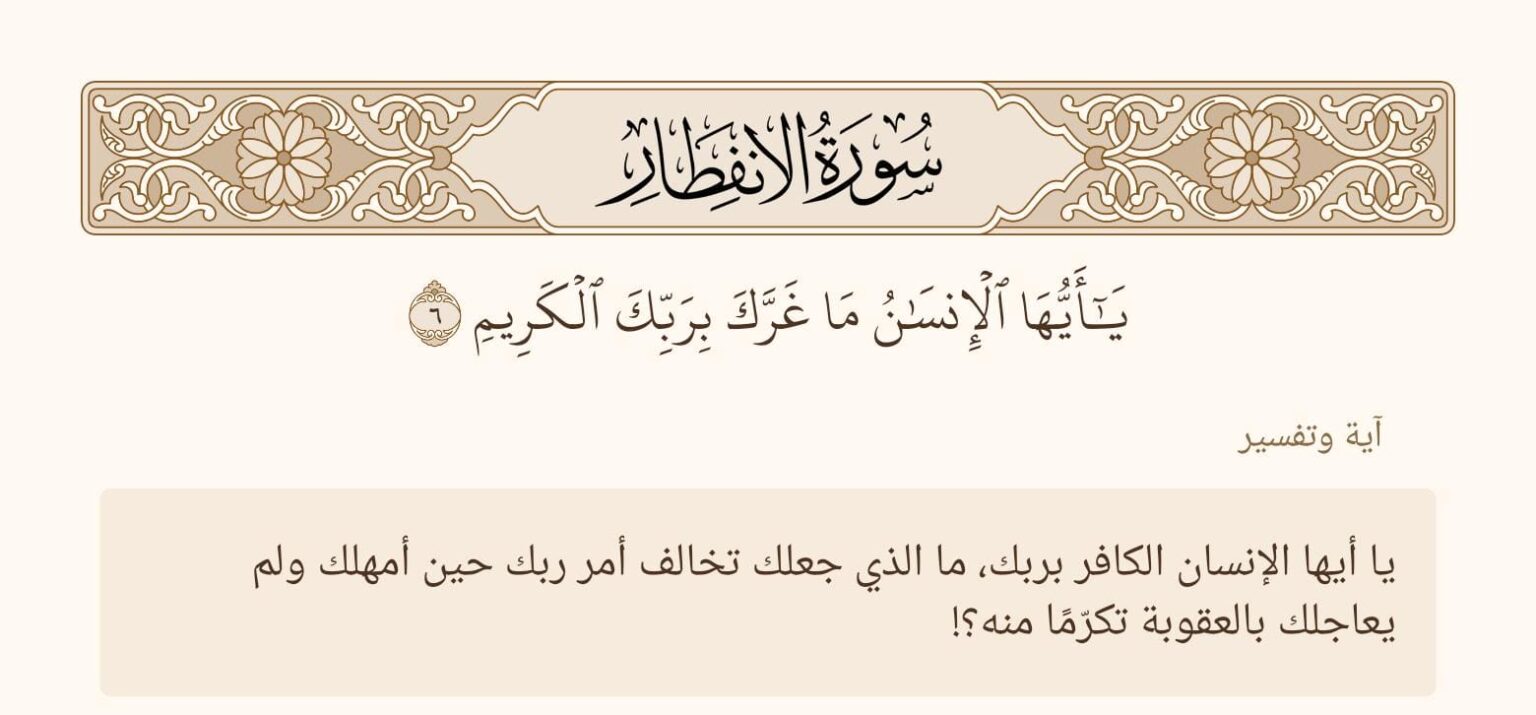 سُورَةُ الانفِطَارِ
يَـٰٓأَيُّهَا ٱلْإِنسَـٰنُ مَا غَرَّكَ بِرَبِّكَ ٱلْكَرِيمِ ٦
آية وتفسير
يا أيها الإنسان الكافر بربك، ما الذي جعلك تخالف أمر ربك حين أمهلك ولم
يعاجلك بالعقوبة تكرّمًا منه؟!